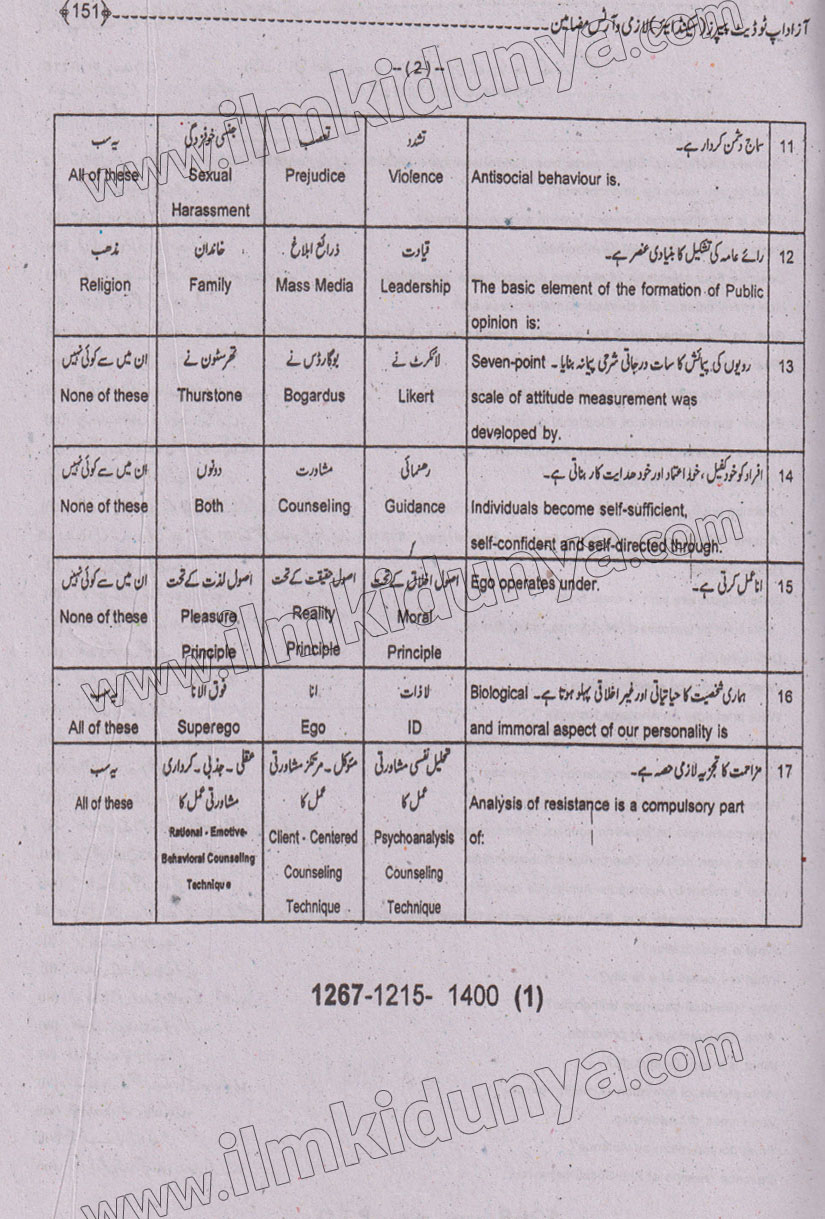 ﴿151﴾
آزاد اپ ٹو ڈیٹ پیپرز (سیکنڈ ایئر) لازمی و آرٹس مضامین
--(2)--
11
سماج دشمن کردار ہے۔
Antisocial behaviour is.
تشدد
Violence
تعصب
Prejudice
جنسی خوفزدگی
Sexual
Harassment
یہ سب
All of these
12
رائے عامہ کی تشکیل کا بنیادی عنصر ہے۔
The basic element of the formation of Public
opinion is:
قیادت
Leadership
ذرائع ابلاغ
Mass Media
خاندان
Family
مذھب
Religion
13
رویوں کی پیمائش کا سات درجاتی شرحی پیمانہ بنایا۔ Seven-point
scale of attitude measurement was
developed by.
لائکرٹ نے
Likert
بوگارڈس نے
Bogardus
تھرسٹون نے
Thurstone
ان میں سے کوئی نہیں
None of these
14
افراد کو خود کفیل، خود اعتماد اور خود ھدایت کار بناتی ہے۔
Individuals become self-sufficient,
self-confident and self-directed through.
رھنمائی
Guidance
مشاورت
Counseling
دونوں
Both
ان میں سے کوئی نہیں
None of these
15
انا عمل کرتی ہے۔ Ego operates under.
اصول اخلاق کے تحت
Moral
Principle
اصول حقیقت کے تحت
Reality
Principle
اصول لذت کے تحت
Pleasure
Principle
ان میں سے کوئی نہیں
None of these
16
ہماری شخصیت کا حیاتیاتی اور غیر اخلاقی پہلو ہوتا ہے۔ Biological
and immoral aspect of our personality is
لاذات
ID
انا
Ego
فوق الانا
Superego
یہ سب
All of these
17
مزاحمت کا تجزیہ لازمی حصہ ہے۔
Analysis of resistance is a compulsory part
of:
تحلیل نفسی مشاورتی
عمل کا
Psychoanalysis
Counseling
Technique
مؤکل۔مرتکز مشاورتی
عمل کا
Client - Centered
Counseling
Technique
عقلی۔جذبی۔کرداری
مشاورتی عمل کا
Rational - Emotive-
Behavioral Counseling
Technique
یہ سب
All of these
1267-1215- 1400 (1)
www.ilmkidunya.com
www.ilmkidunya.com
www.ilmkidunya.com